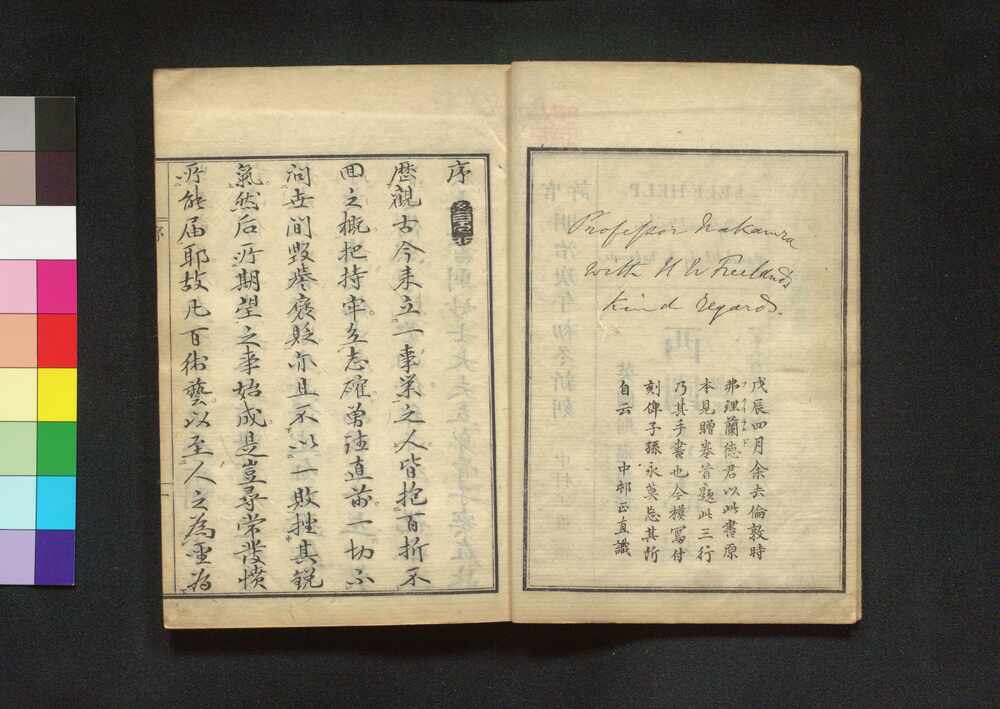 Professor Nakamura
with H W Freeland's
kind regards.
戊辰四月余去倫敦時
弗理蘭徳君以此書原
本見贈巻首題此三行
乃其手書也今模写付
刻俾子孫永莫忘其所
自云 中邨正直識
序
歴観古今来立一事業之人皆抱百折不
回之概把持牢立志確曽跬直前一切不
問世間毀誉褒貶亦且不以一敗挫其鋭
氣然后所期望之事始成是豈尋常發憤
所能届耶故凡百術藝以至人之為聖為